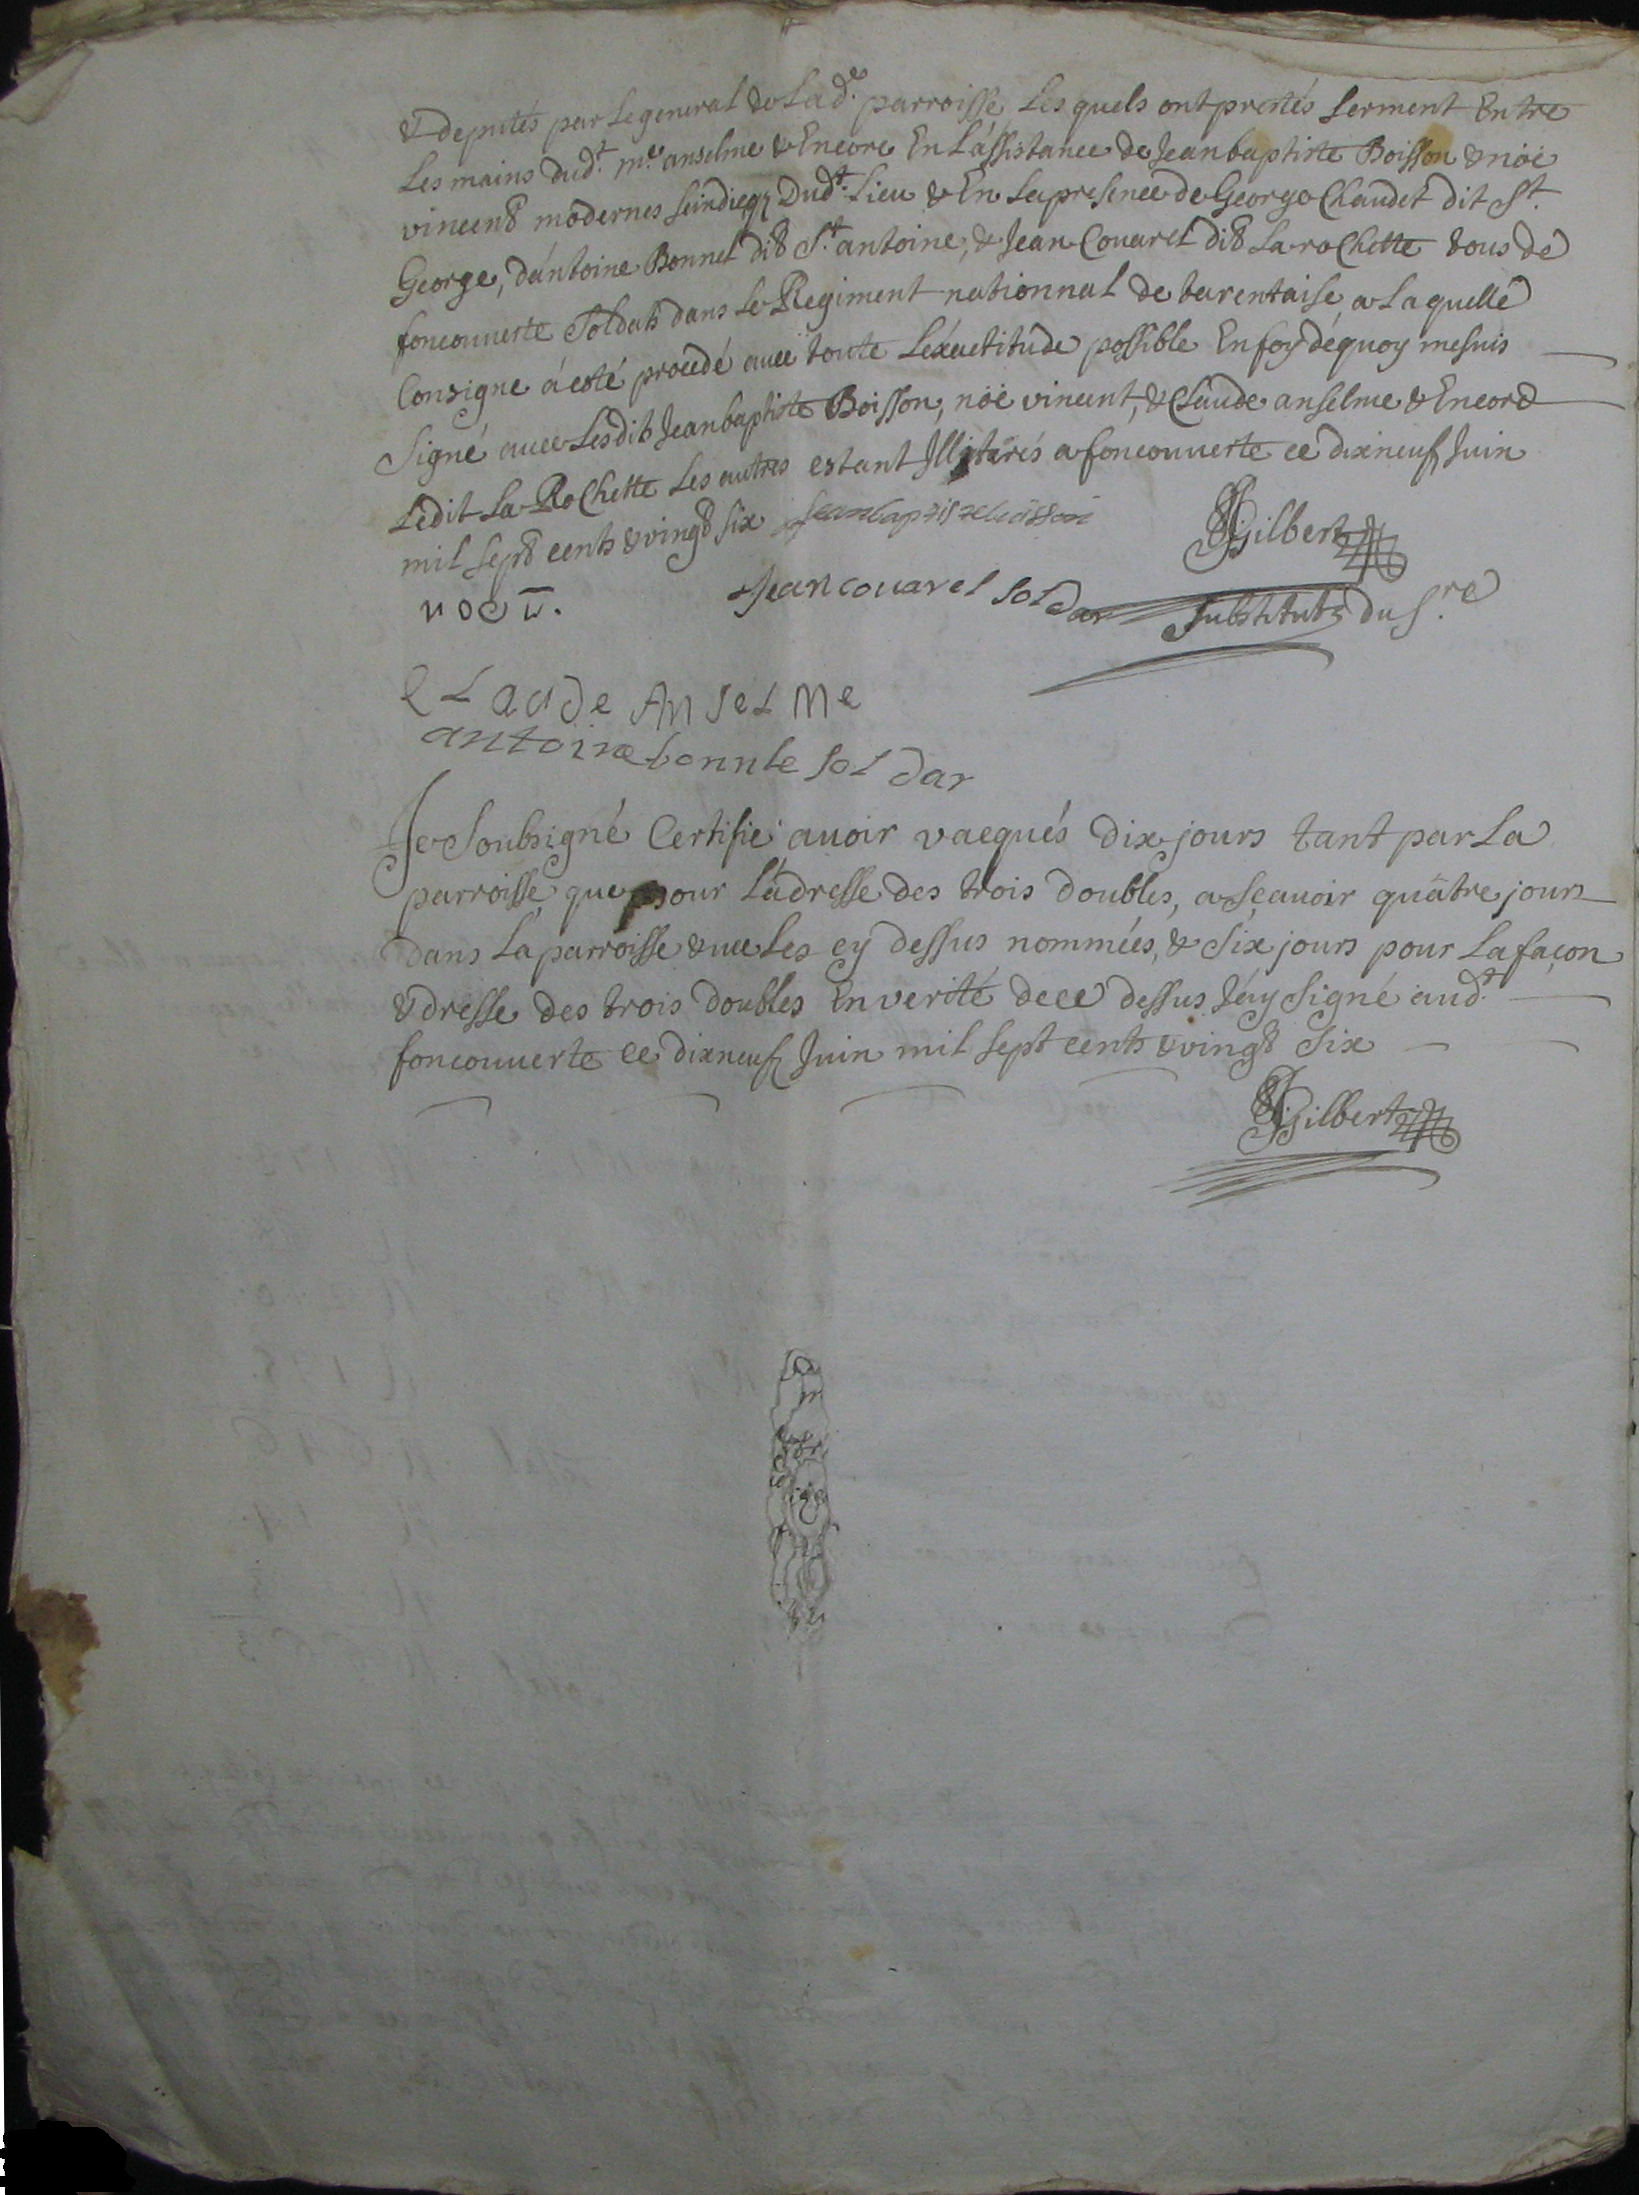 & deputés par Le general de Lad.e parroisse Les quels ont prestés serment Entre
Les mains dud.t m.e anselme & Encore En L'assistance de Jeanbaptiste Boisson & noé
vincent modernes seindiqz Dud.t Lieu & En La presence de George Chaudet dit S.t
George, d'antoine Bonnel dit S.t antoine, & Jean Couarel dit La roChette tous de
fonconuerte soldats dans Le Regiment nationnal de tarentaise, a Laquelle
Consigne à esté procedé auec toute L'éxactitude possible En foy déquoy mesuis
Signé auec Lesdits Jeanbaptiste Boisson, noé vincent, & Claude anselme & Encore
Ledit La RoChette Les autres estant Illitérés a fonconuerte ce dixneuf Juin
mil sept cents & vingt six Jeanbaptiste boisson
Gilbert
Jean couarel soldar
substitut du S.re
CLaude AnseLMe
antoine bonnle soldar
Je Soubsigné Certifie auoir vacqués dix jours tant par La
parroisse que pour L'adresse des trois doubles, a Sçauoir quatre jours
dans La parroisse auec Les cy dessus nommées, & Six jours pour La façon
& dresse des trois doubles En verité de ce dessus J'ay signé aud.t
fonconuerte ce dixneuf Juin mil sept cents & vingt six
Gilbert